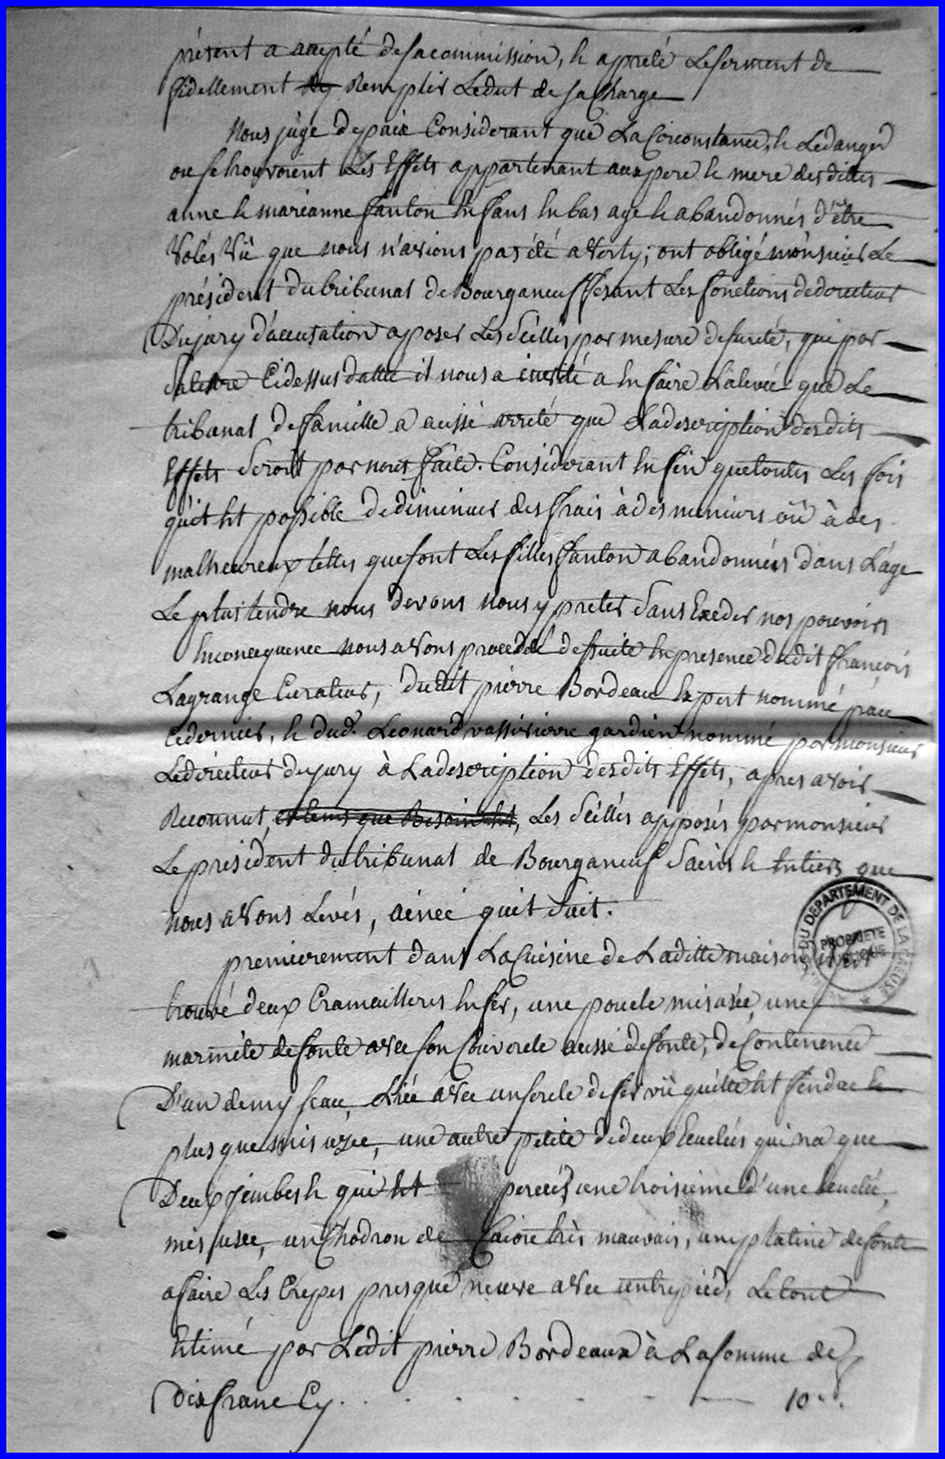 présent a accepté de sa commission, et a preté le serment de
fidellement Remplir le dut de sa charge
Nous juge de paix Considerant que la Circonstance, et le danger
ou se trouvoient les Effets appartenant aux pere et mere desdittes
anne et marianne fanton enfans en bas age et abandonnés d'être
volés vü que nous n'avions pas été averty; ont obligé monsieur le
président du tribunal de Bourganeuf fesant les fonctions de directeur
Du jury d'accusation aposer les scellés par mesure de sureté, que par
sa lettre Cidessus dattée il nous a invité a en faire la levée que le
tribunal de famille a aussi arreté que la description desdits
Effets seroit par nous faite. Considerant enfin que toutes les fois
qu'il est possible de diminuer des frais à des mineurs où à des
malheureux telles que sont les filles fanton abandonnées dans l'age
le plus tendre nous devons nous y preter sans Exeder nos pouvoirs
En consequence nous avons procedé de suite en presence dudit françois
Lagrange Curateur, dudit pierre Bordeau Expert nommé par ce
cedernier, et dud. Leonard vassiviere gardien nommé par monsieur
le directeur du jury à la description desdits Effets, apres avoir
Reconnut, et tems que Besoin est, les scéllés apposés par monsieur
le president du tribunal de Bourganeuf sains et entiers que
nous avons levés, ainsi quil suit.
premierement dans la Cuisine de laditte maison
trouvé deux Cramailleres en fer, une pouele mi usée, une
marmite de fonte avec son Couvercle aussi de fonte, de Contenence
D'un demy seau, liée avec un sercle de fer vü quelle est fendue et
plus que mis uzée, une autre petite de deux Ecuelées qui n'a que
Deux jambes et qui est percée, une troisieme d'une Ecuelée,
mis usée, un Chodron de Cuivre très mauvais, une platine de fonte
a faire les Crepes presque neuve avec un trepied, le tout
Estimé par Ledit pierre Bordeaux à la somme de
Dix franc Cy . . . . . 10 . .
DU DÉPARTEMENT DE LA CREUSE
PROPRIÉTÉ PUBLIQUE